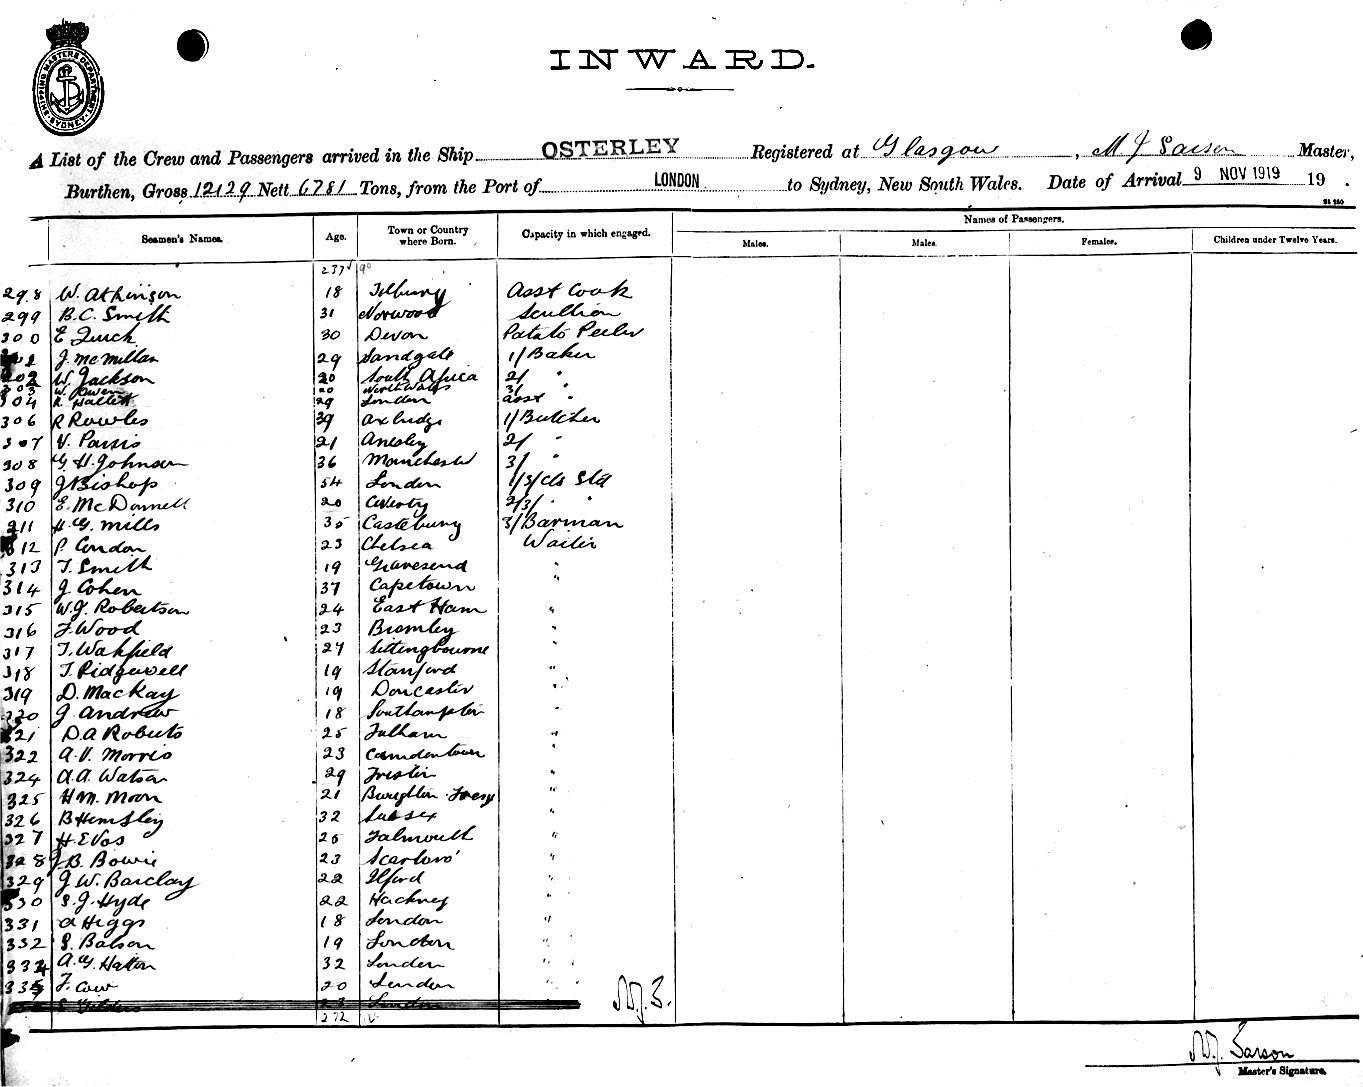 SHIPPING MASTERS DEPARTMENT SYDNEY
INWARD.
A List of the Crew and Passengers arrived in the Ship OSTERLEY Registered at Glasgow, M J Sarson Master,
Burthen, Gross 12129 Nett 6781 Tons, from the Port of LONDON to Sydney, New South Wales. Date of Arrival 9 NOV 1919 19 .
Names of Passengers.
Seamen's Names. Age. Town or Country where Born. Capacity in which engaged. Males. Males. Females. Children under Twelve Years.
237
298 W. Atkinson 18 Tilbury Asst Cook
299 B.C. Smith 31 Norwood Scullion
300 E Quick 30 Devon Patato Peeler
J. McMillan 29 Sandgate 1/ Baker
302 W. Jackson 20 South Africa 2/ "
303 W. Owen 20 North Wales 3/ "
304 R. Hallett 29 London asst "
306 R Rowles 39 Axbridge 1/ Butcher
307 V. 21 2/ "
308 G. H. Johnson 36 Manchester 3/ "
309 J Bishop 54 London 1/3/cls Std
310 E. McDonnell 20 Coventry 2/3/ " "
311 H. G. Mills 35 3/ Barman
312 P. Condon 23 Chelsea Waiter
313 T. Smith 19 Gravesend "
314 J. Cohen 37 Capetown "
315 W.J. Robertson 24 East Ham "
316 F. Wood 23 Bromley "
317 T. Wakfield 27 Sittingbourne "
318 T. Ridgewell 19 Stanford "
319 D. Mackay 19 Doncaster "
320 J. Andrew 18 Southampton "
321 D.A Roberts 25 Fulham "
322 A.V. Morris 23 Camdentown "
324 A.A. Watson 29 "
325 H.M. Moon 21 "
326 B Hemsley 32 Sussex "
327 H.E Vos 25 Falmouth "
328 J.B. Bowie 23 Scarboro' "
329 J. W. Barclay 22 Ilford "
330 S. J. Hyde 22 Hackney "
331 A Higgs 18 London "
332 S. Batson 19 London "
334 A. G. Hatton 32 London "
335 F. Cow 20 London "
23 London
M.J.S.
272
M.J. Sarson
Master's Signature.